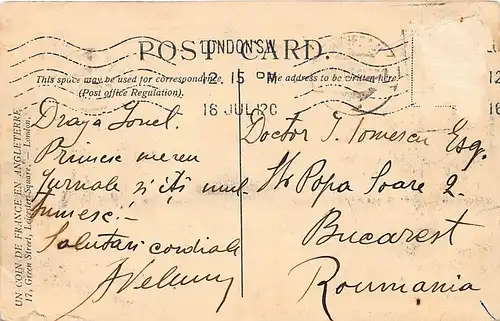 POST CARD.
LONDON S.W
2. 15 PM
18 JUL 20
This space may be used for correspondence
(Post office Regulation).
he address to be written here.
Draga Ionel.
Primesc mereu
jurnale și îți mul-
tumesc! -
Salutari cordiale
Doctor I. Tomescu Esq.
Str Popa Soare 2.
Bucarest
Roumania
UN COIN DE FRANCE EN ANGLETERRE
17, Green Street, Leicester Square, — London.